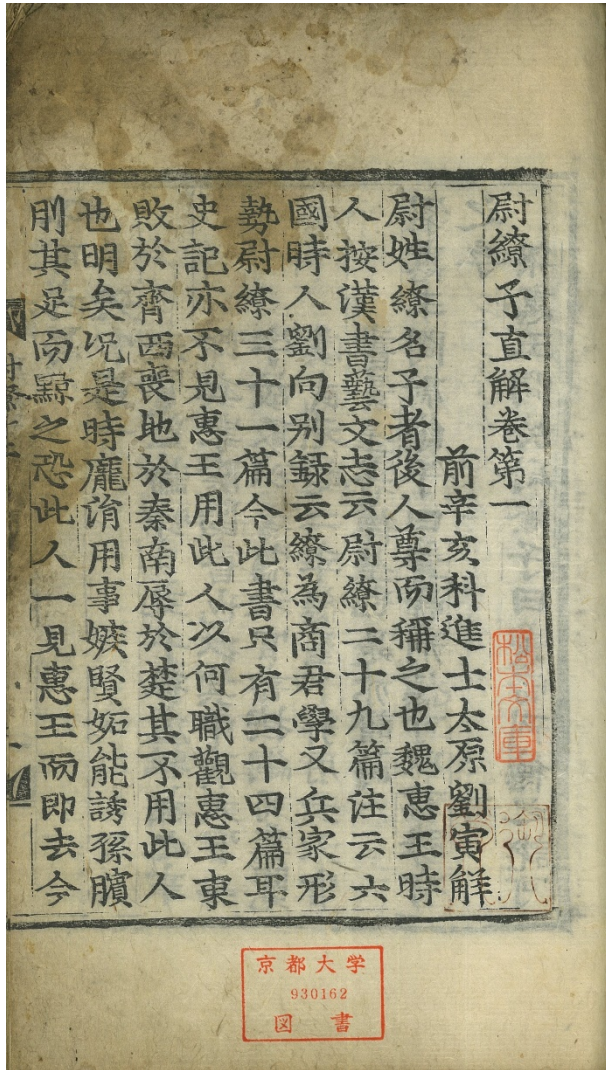 尉繚子直解卷第一
前辛亥科進士太原劉寅解
尉姓繚名子者後人尊而稱之也魏惠王時
人按漢書藝文志云尉繚二十九篇注云六
國時人劉向别録云繚為商君學又兵家形
勢尉繚三十一篇今此書只有二十四篇耳
史記亦不見惠王用此人以何職觀惠王東
敗於齊西喪地於秦南辱於楚其不用此人
也明矣况是時龐涓用事嫉賢妬能誘孫臏
刖其足而黥之恐此人一見惠王而即去今
京都大学
930162
図書